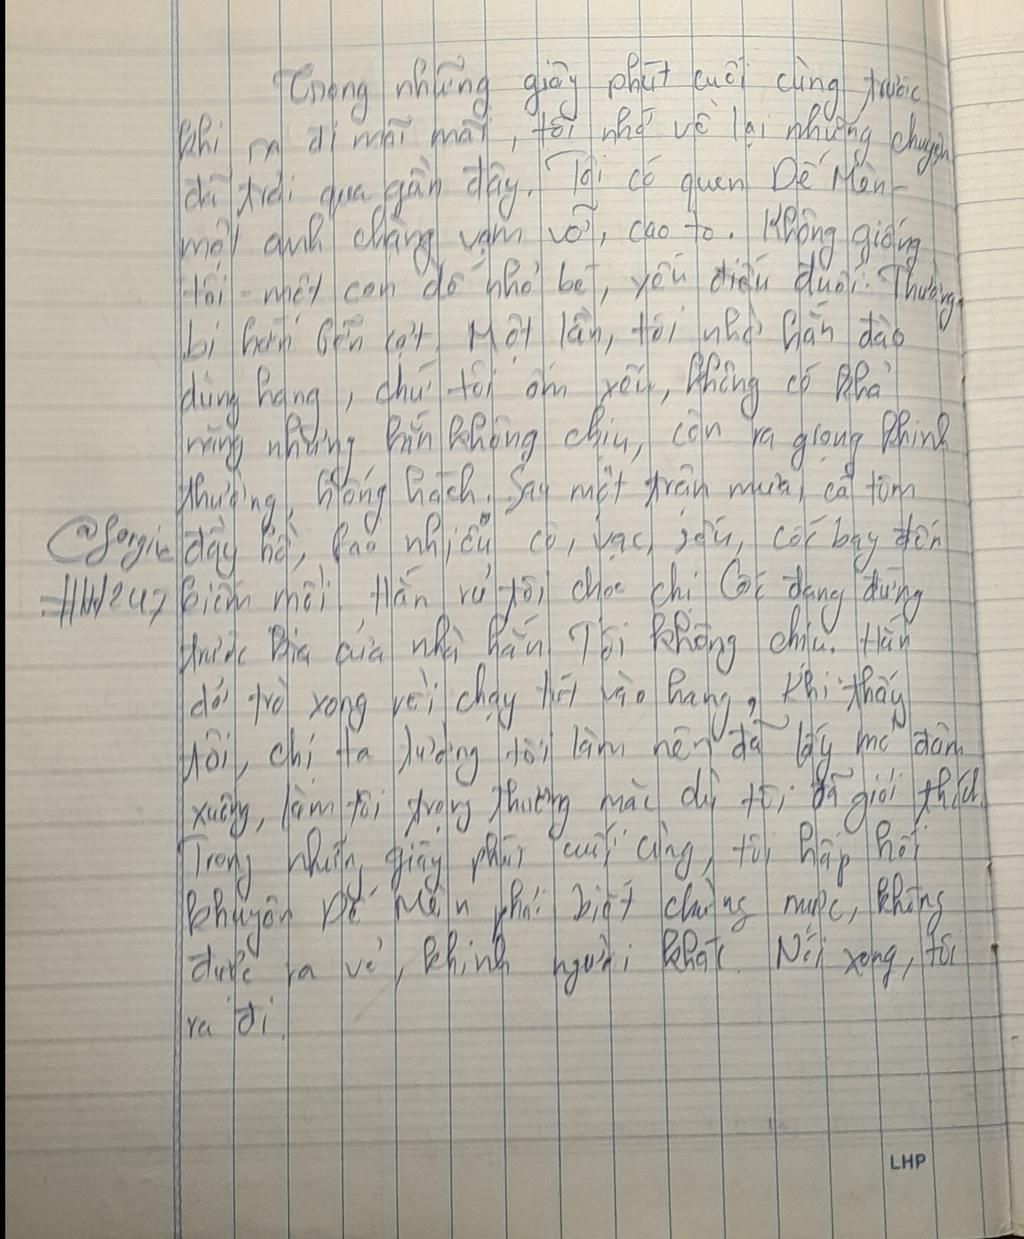 Trong những giây phút cuối cùng trước
khi ra đi mãi mãi, tôi nhớ về lại những chuyện
đã trải qua gần đây. Tôi có quen Dế Mèn -
một anh chàng vạm vỡ, cao to. Không giống
tôi - một con dế nhỏ bé, yếu điếu đuối. Thường
bị hắn bỡn cợt. Một lần, tôi nhờ hắn đào
dùng hang, chứ tôi ốm yếu, không có khả
năng nhưng hắn không chịu, còn ra giọng khinh
thường, hống hách. Sau một trận mưa, cá tôm
đầy hồ, bao nhiêu cò, vạc, sếu, cốc bay đến
@Forgive
#HH247
kiếm mồi. Hắn rủ tôi chọc chị Cốc đang đứng
trước kia cửa nhà hắn. Tôi không chịu. Hắn
dở trò xong rồi chạy tót vào hang. Khi thấy
tôi, chị ta tưởng tôi làm nên đã lấy mỏ đâm
xuống, làm tôi trọng thương mặc dù tôi đã giải thích.
Trong những giây phút cuối cùng, tôi hấp hối
khuyên Dế Mèn phải biết chừng mực, không
được ra vẻ, khinh người khác. Nói xong, tôi
ra đi.
LHP